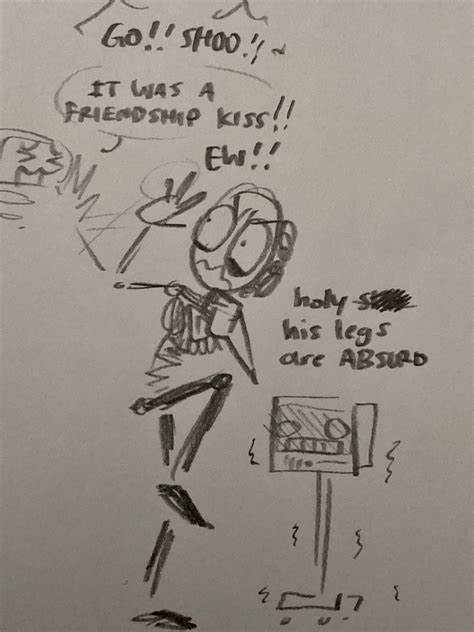 GO!! SHOO!!
IT WAS A
FRIENDSHIP KISS!!
EW!!
holy
his legs
are ABSURD